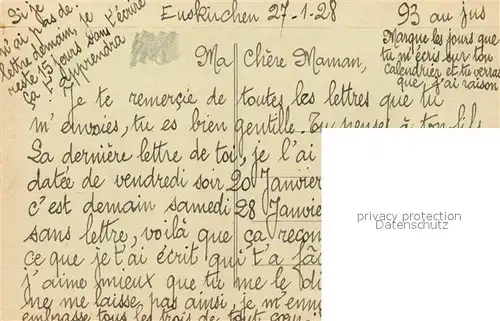 Euskirchen 27-1-28
93 au jus
Si je
n'ai pas de
lettre demain, je
reste 15 jours sans t'écrire
ça t'apprendra
Marque les jours que
tu m'écris sur ton
calendrier et tu verras
que j'ai raison
Ma Chère Maman,
Je te remercie de toutes les lettres que tu
m'envoies, tu es bien gentille. Tu penses à ton fils
La dernière lettre de toi, je l'ai
datée de vendredi soir 20 Janvier
c'est demain samedi 28 Janvier
sans lettre, voilà que ça
ce que je t'ai écrit qui t'a
j'aime mieux que tu me le
me laisse pas ainsi, je
embrasse tous les trois de tout cœur
privacy protection
Datenschutz